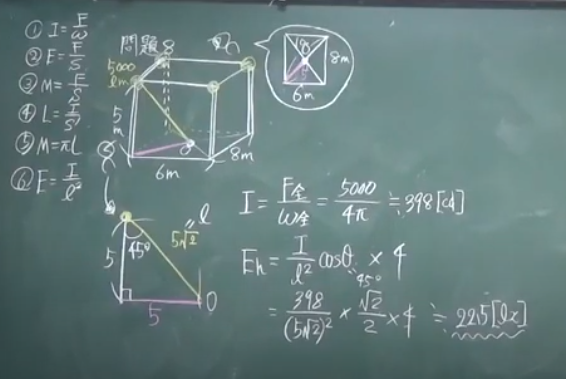 ① I=F/ω
② E=F/S
③ M=F/S
④ L=I/S'
⑤ M=πL
⑥ E=I/l²
問題8
5000
lm
5
m
6m
8m
8m
6m
45°
5
5√2
l
5
O
I = F全/ω全 = 5000/4π ≒ 398 [cd]
Eh = I/l² cosθ × 4
45°
= 398/(5√2)² × √2/2 × 4 ≒ 22.5 [lx]